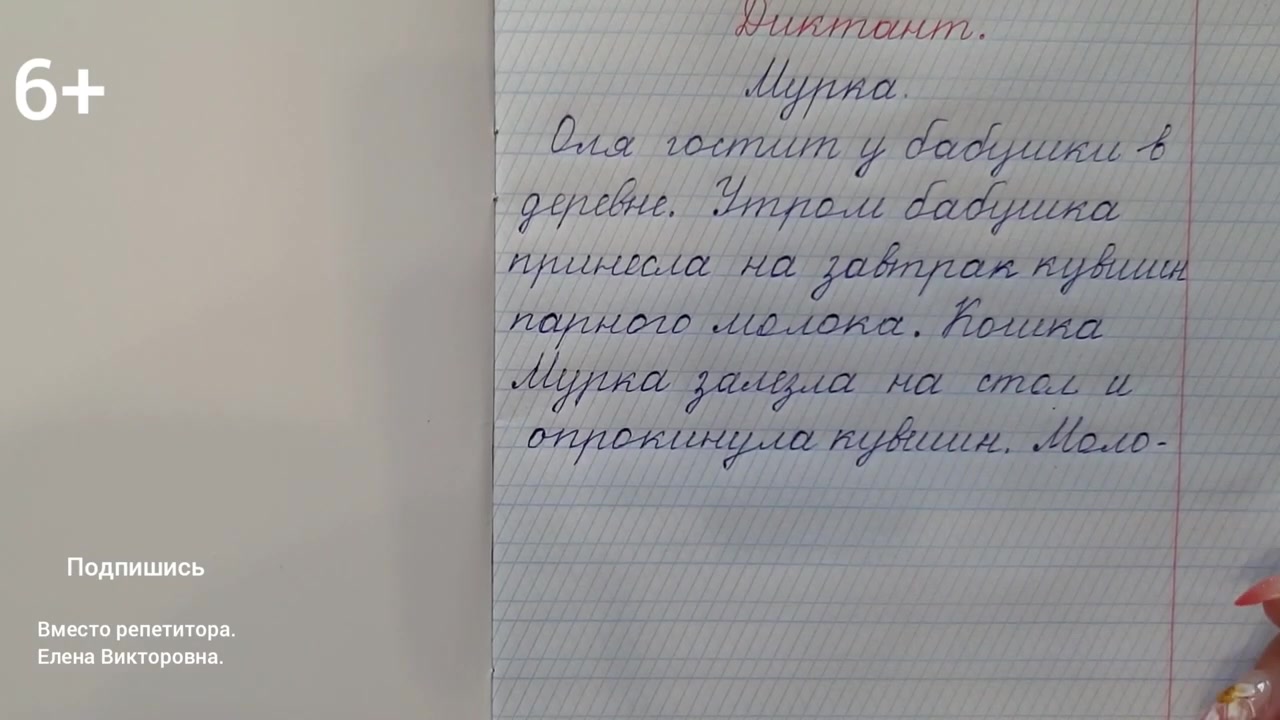 6+
Диктант.
Мурка.
Оля гостит у бабушки в
деревне. Утром бабушка
принесла на завтрак кувшин
парного молока. Кошка
Мурка залезла на стол и
опрокинула кувшин. Моло-
Подпишись
Вместо репетитора.
Елена Викторовна.